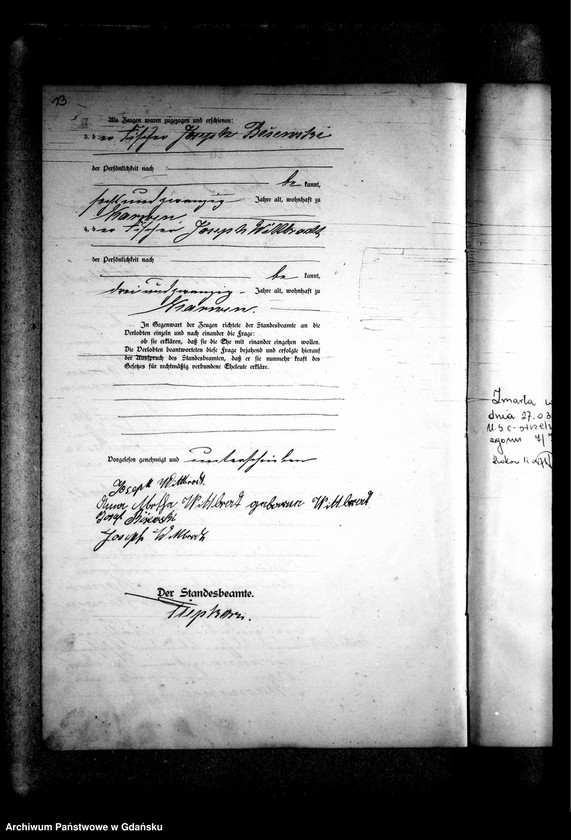 13
Als Zeugen waren zugezogen und erschienen:
3. der Fischer Joseph Bisewski
der Persönlichkeit nach
be kannt,
sechsundzwanzig Jahre alt, wohnhaft zu
Karwen
4. der Fischer Joseph Wittbrodt
der Persönlichkeit nach
be kannt,
dreiundzwanzig Jahre alt, wohnhaft zu
Karwen.
In Gegenwart der Zeugen richtete der Standesbeamte an die
Verlobten einzeln und nach einander die Frage:
ob sie erklären, daß sie die Ehe mit einander eingehen wollen.
Die Verlobten beantworteten diese Frage bejahend und erfolgte hierauf
der Ausspruch des Standesbeamten, daß er sie nunmehr kraft des
Gesetzes für rechtmäßig verbundene Eheleute erkläre.
Vorgelesen, genehmigt und unterschrieben
Joseph Wittbrodt.
Anna Martha Wittbrodt geborene Wittbrodt
Josef Bisewski
Joseph Wittbrodt
Der Standesbeamte.
Zmarła w
dnia 27.03
U.S.C.
Archiwum Państwowe w Gdańsku